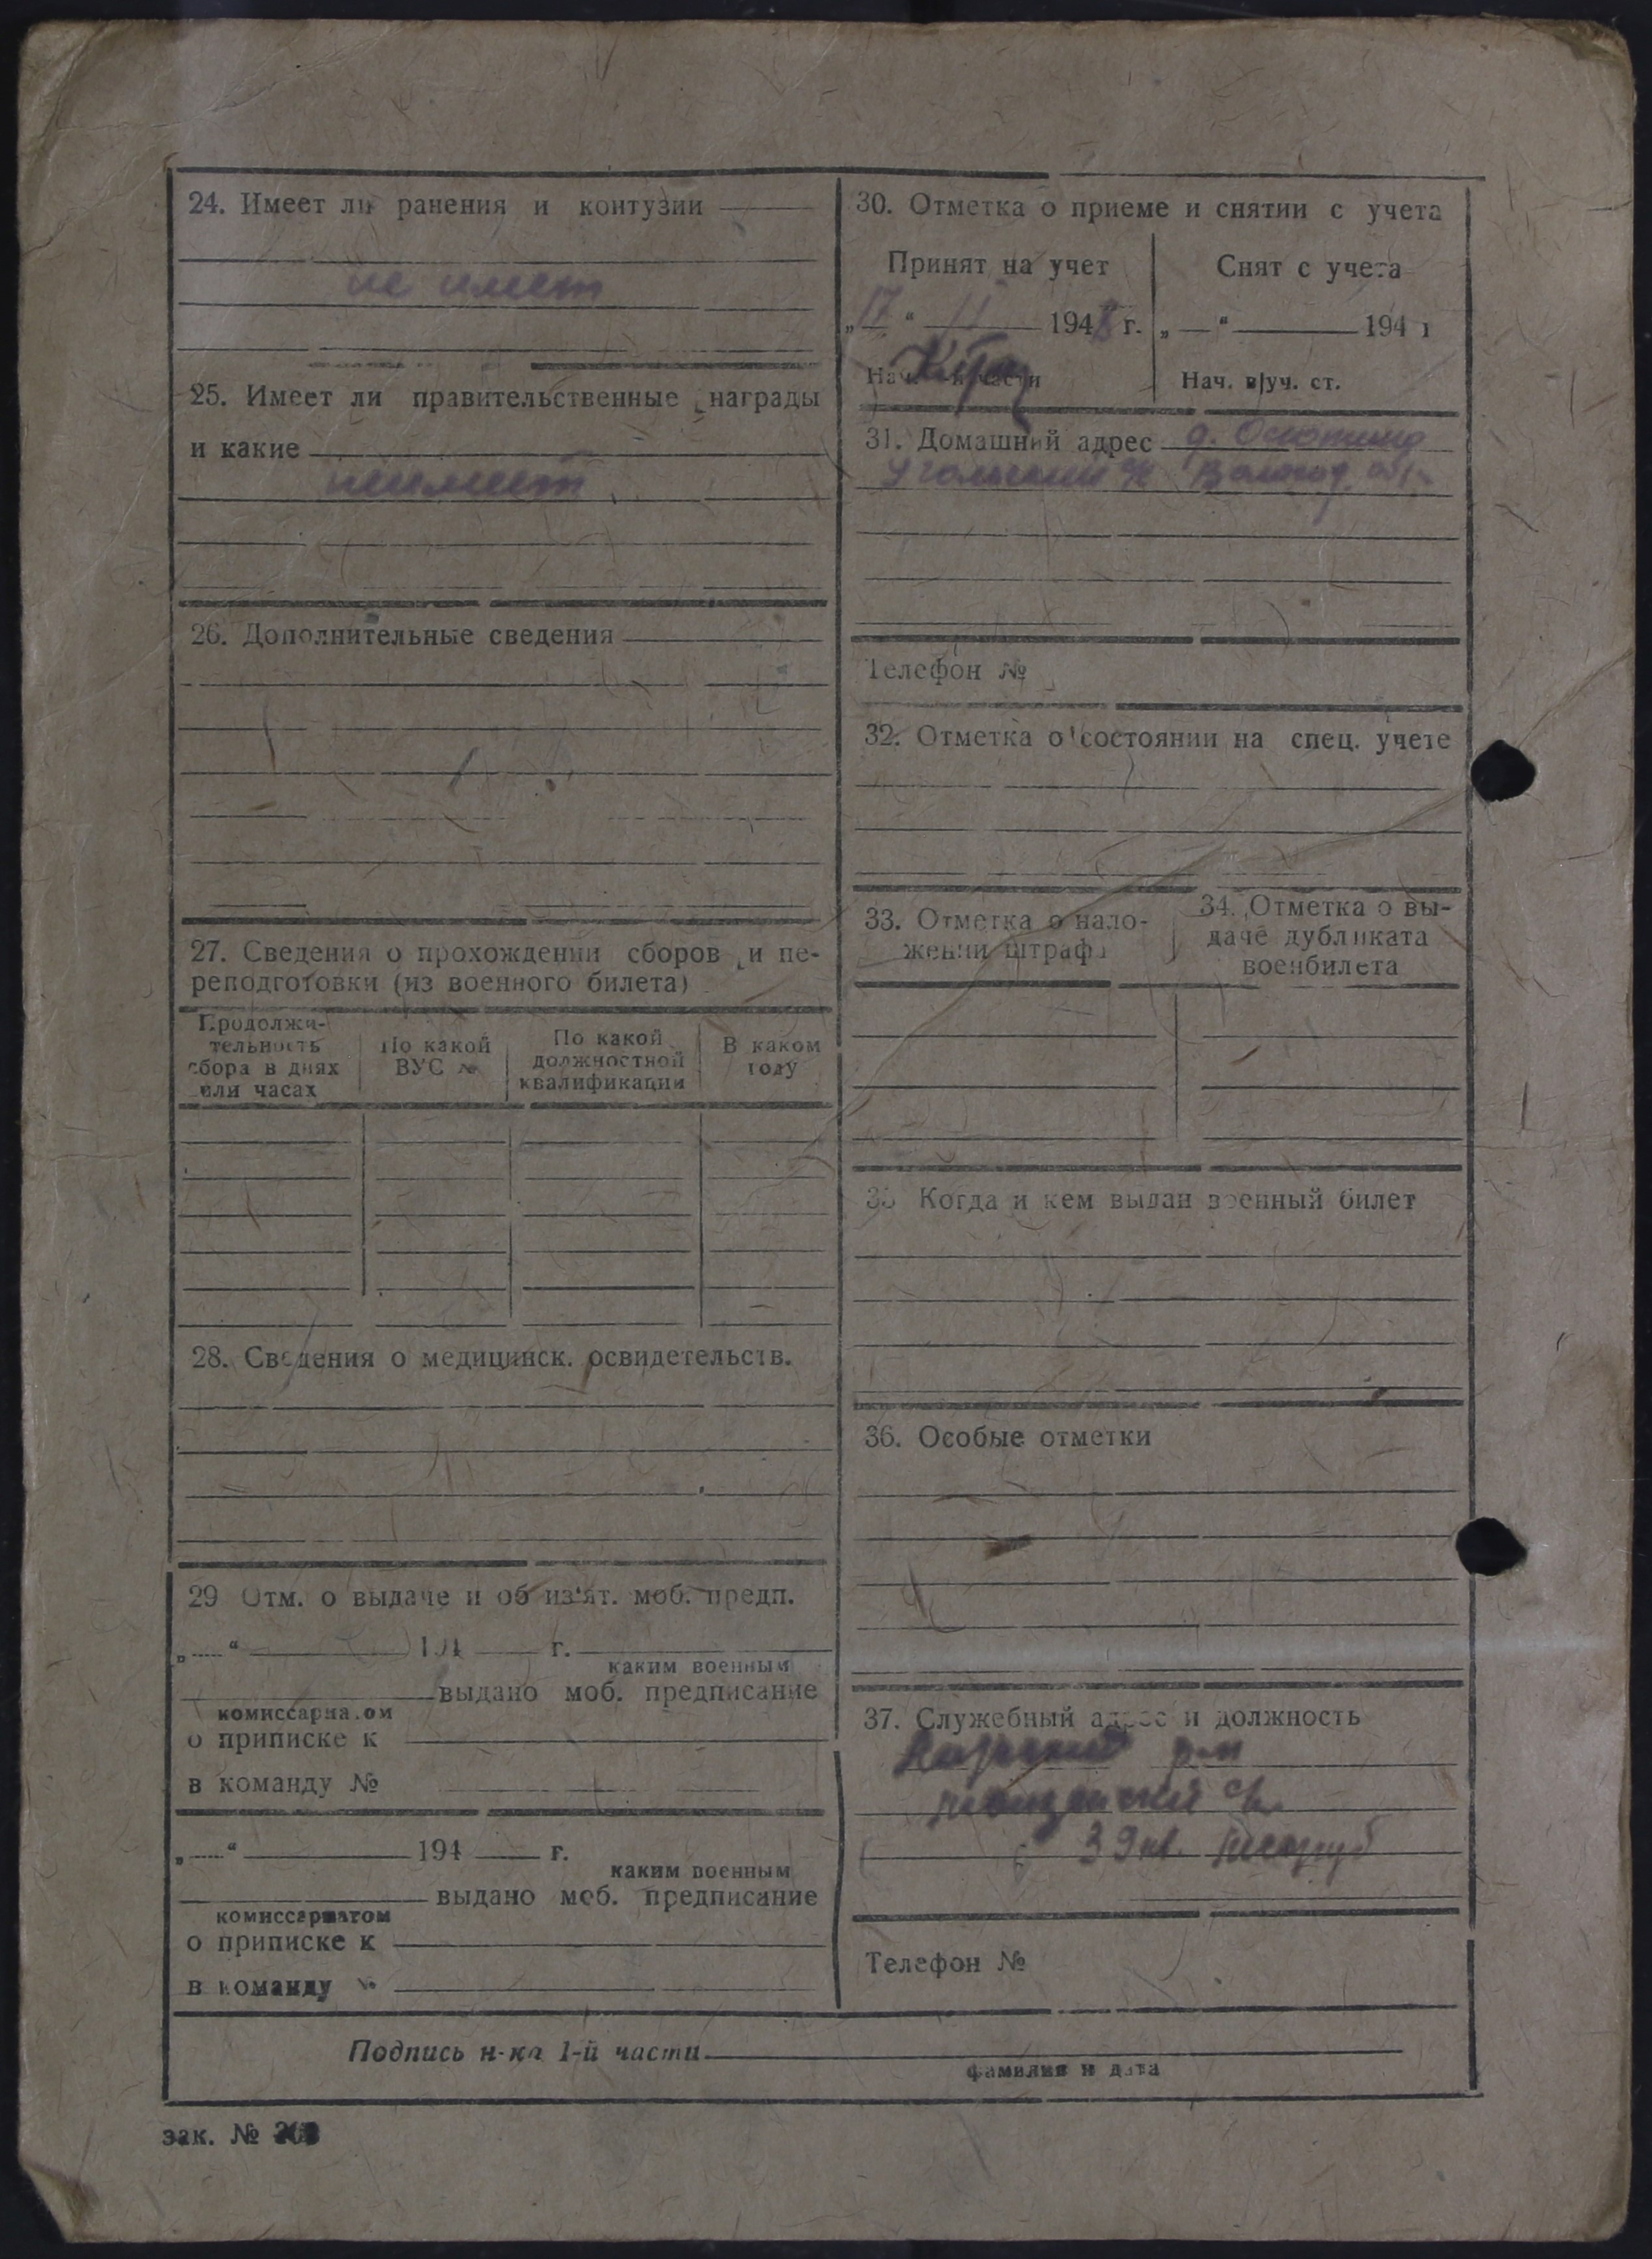 24. Имеет ли ранения и контузии
не имеет
25. Имеет ли правительственные награды
и какие
неимеет
26. Дополнительные сведения
27. Сведения о прохождении сборов и пе-
реподготовки (из военного билета)
Продолжи-
тельность
сбора в днях
или часах
По какой
ВУС №
По какой
должностной
квалификации
В каком
году
28. Сведения о медицинск. освидетельств.
29 Отм. о выдаче и об из'ят. моб. предп.
„ “ 194 г.
каким военным
выдано моб. предписание
комиссариатом
о приписке к
в команду №
„ “ 194 г.
каким военным
выдано моб. предписание
комиссариатом
о приписке к
в команду №
30. Отметка о приеме и снятии с учета
Принят на учет
„17“ 11 194 г.
Нач. части
Снят с учета
„ “ 194 г
Нач. в|уч. ст.
31. Домашний адрес д.
с/с Волог. обл.
Телефон №
32. Отметка о состоянии на спец. учете
33. Отметка о нало-
жении штрафа
34. Отметка о вы-
даче дубликата
военбилета
35 Когда и кем выдан военный билет
36. Особые отметки
37. Служебный адрес и должность
р-н
39 кв.
Телефон №
Подпись н-ка 1-й части
фамилия и дата
зак. №